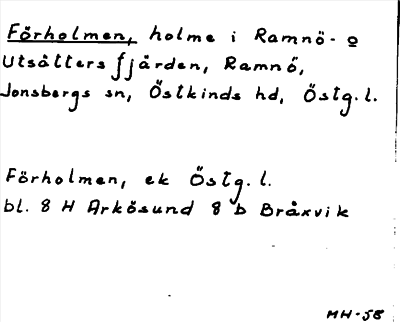 Förholmen, holme i Ramnö- o
Utsätters fjärden, Ramnö,
Jonsbergs sn, Östkinds hd, Östg. l.
Förholmen, ek Östg. l.
bl. 8 H Arkösund 8 b Bråxvik
MH-58